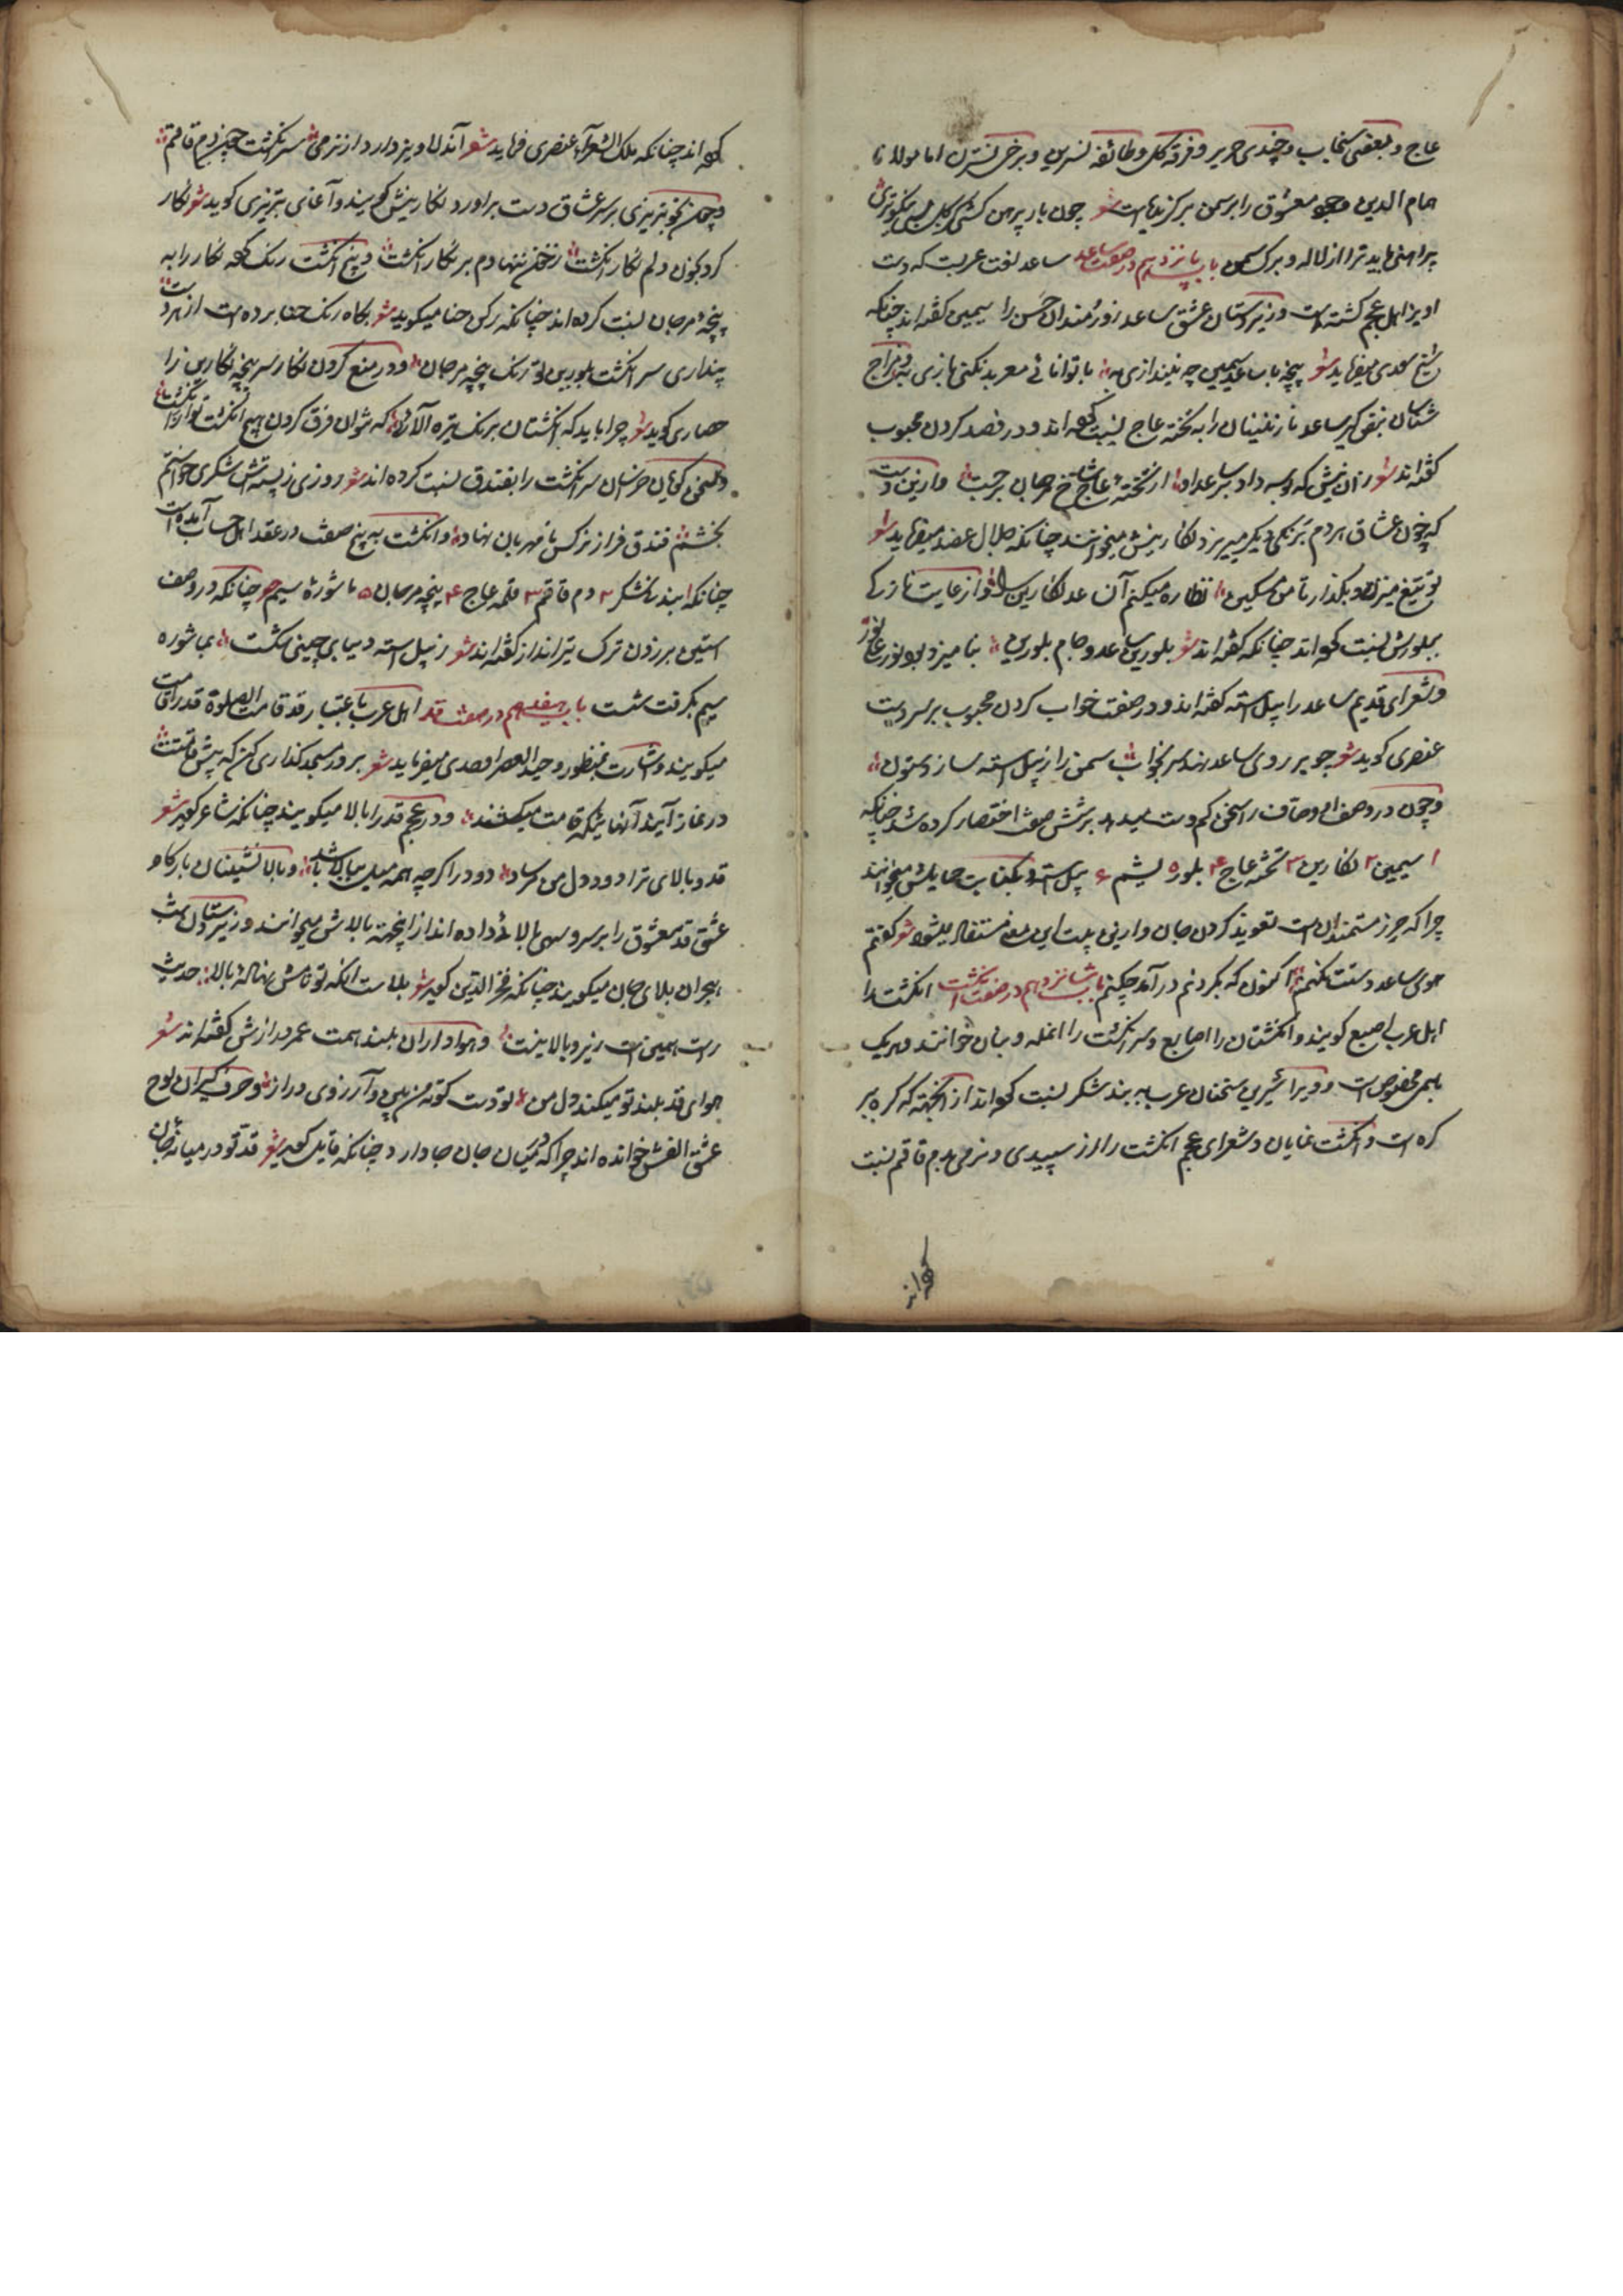 عاج و بعضی سنجاب و چندی حریر و فرقه گل و طائفه نسرین و برخی نسترن اما مولانا
همام الدین وجود معشوق را بر سمن برگزیده است شعر چون بار پیرهن کشی
پیراهنی باید ترا از لاله و برگ سمن باب پانزدهم در صفت ساعد ساعد لغت عربست که دست
اویز اهل عجم گشته است و زیردستان عشق ساعد زورمندان حسن را سیمین گفته‌اند چنانکه
شیخ سعدی میفرماید شعر پنجه با ساعد سیمین چه بیندازی به با توانائی معربد نکنی بازی به و مزاج
شناسان ساعد نازنینان را به تخته عاج نسبت کرده اند و در فصد کردن محبوب
گفته‌اند شعر زان نیش که بوسه داد بر ساعد او از تخته عاج شاخ مرجان برجست و ازین دست
که خون عشاق هردم برنگی دیگر میریزد نگارینش میخوانند چنانکه جلال عضد میفرماید شعر
تو تیغ میزن و بگذار تا من مسکین نظاره میکنم آن ساعد نگارین را و از غایت نازکی
ببلورش نسبت کرده اند چنانکه گفته‌اند شعر بلورین ساعد و جام بلورین بنامیزد بود نور علی نور
و شعرای قدیم ساعد را پیل استه گفته‌اند و در صفت خواب کردن محبوب بر سر دست
عنصری گوید شعر چو بر روی ساعد نهد سر بخواب سمن را ز پیل استه سازد ستون
و چون در وصف او وصاف را سخن کم دست میدهد بر شش صفت اختصار کرده شد چنانکه
۱ سیمین ۲ نگارین ۳ تخته عاج ۴ بلور ۵ یشم ۶ پیل استه و بکنایت حمایلش میخوانند
چرا که حرز مستمندان است تعویذ کردن جان و ازین بیت این معنی مستفاد میشود شعر گفتم
هوی ساعد دستت نکنم اکنون که بگردنم درآمد چکنم باب شانزدهم در صفت انگشت انگشت را
اهل عرب اصبع گویند و انگشتان را اصابع و سر انگشت را انمله و بنان خوانند و هریک
باسمی مخصوص است و ویرا شیرین سخنان عرب به بند شکر نسبت کرده اند از آنجهة که گره بر
گره است و انگشت نمایان و شعرای عجم انگشت را از سپیدی و نرمی بدم قاقم نسبت
کرده اند
کرده اند چنانکه ملک الشعرآ عنصری فرماید شعر آن دلاویز دارد از نرمی سر انگشت چون دم قاقم
و چون خونریزی بر سر عشاق دست براورد نگارینش گویند و آغای تبریزی گوید شعر نگار
کرد بخون دلم نگار انگشت ز خون نهادم بر نگار انگشت و پنج انگشت رنگ کرده نگار را به
پنجه مرجان نسبت کرده اند چنانکه رکن حنا میگوید شعر بگاه رنگ حنا برده است از هر دست
پنداری سر انگشت بلورین تو رنگ پنجه مرجان و در منع کردن نگار سر پنجه نگارین را
حصاری گوید شعر چرا باید که انگشتان برنگ تیره آلائی که نتوان فرق کردن هیچ انگشت تو از انگشتها
و بعضی گویان خراسان سر انگشت را بفندق نسبت کرده اند شعر روزی ز پسته‌ش شکری خواستم
بخشم فندق فراز نرگس نامهربان نهاد و انگشت به پنج صفت در عقد اهل حساب آمده است
چنانکه ۱ بند نیشکر ۲ دم قاقم ۳ قلمه عاج ۴ پنجه مرجان ۵ ماشورهٔ سیم چنانکه در وصف
استین برزدن ترک تیرانداز گفته‌اند شعر ز پیل استه دیبای چینی شکست بماشوره
سیم بگرفت شست باب هفدهم در صفت قد اهل عرب باعتبار قد قامت الصلوة قد را قامت
میگویند و اشارت بمنظور وحید العصر اوحدی میفرماید شعر بر در مسجد گذاری کن که پیش قامتت
در نماز آیند آنهائیکه قامت میکشند و در عجم قد را بالا میگویند چنانکه شاعر گوید شعر
قد و بالای ترا دود دل من مرساد دود را گر چه همه میل ببالا باشد و بالانشینان بارگاه
عشق قد معشوق را بر سرو سهی بالائی داده اند از اینجهة بالاش میخوانند و زیردستان شب
هجران بلای جان میگویند چنانکه فخر الدین گوید شعر بلاست آنکه تو نامش نهاده بالا حدیث
راست همین است زیر و بالا نیست و هواداران بلند همت عمر درازش گفته‌اند شعر
هوای قد بلند تو میکند دل من تو دست کوته من بین و آرزوی دراز و حرف گیران لوح
عشق الفش خوانده اند چرا که در میان جان جا دارد چنانکه قایل گوید شعر قد تو در میانه جان